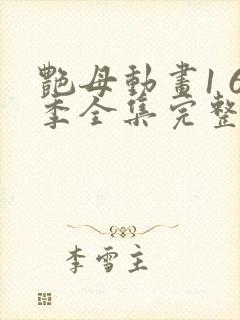 艷母動畫1 6
季全集完整
李雪主